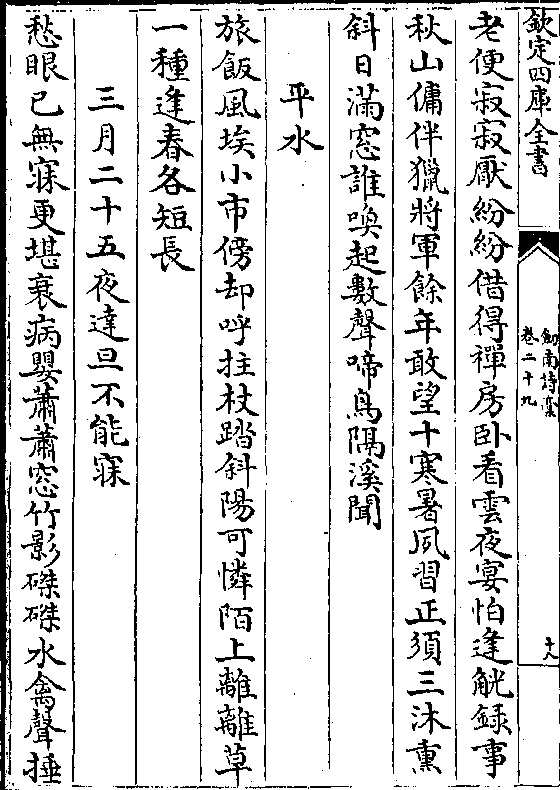 欽定四庫全書
劍南詩藁
卷二十九
十八
老便寂寂厭紛紛借得禪房卧看雲夜宴怕逢觥録事
秋山傭伴獵將軍餘年敢望十寒暑夙習正須三沐熏
斜日滿窓誰喚起數聲啼鳥隔溪聞
平水
旅飯風埃小市傍却呼拄杖踏斜陽可憐陌上離離草
一種逢春各短長
三月二十五夜達旦不能寐
愁眼已無寐更堪衰病嬰蕭蕭窓竹影磔磔水禽聲捶